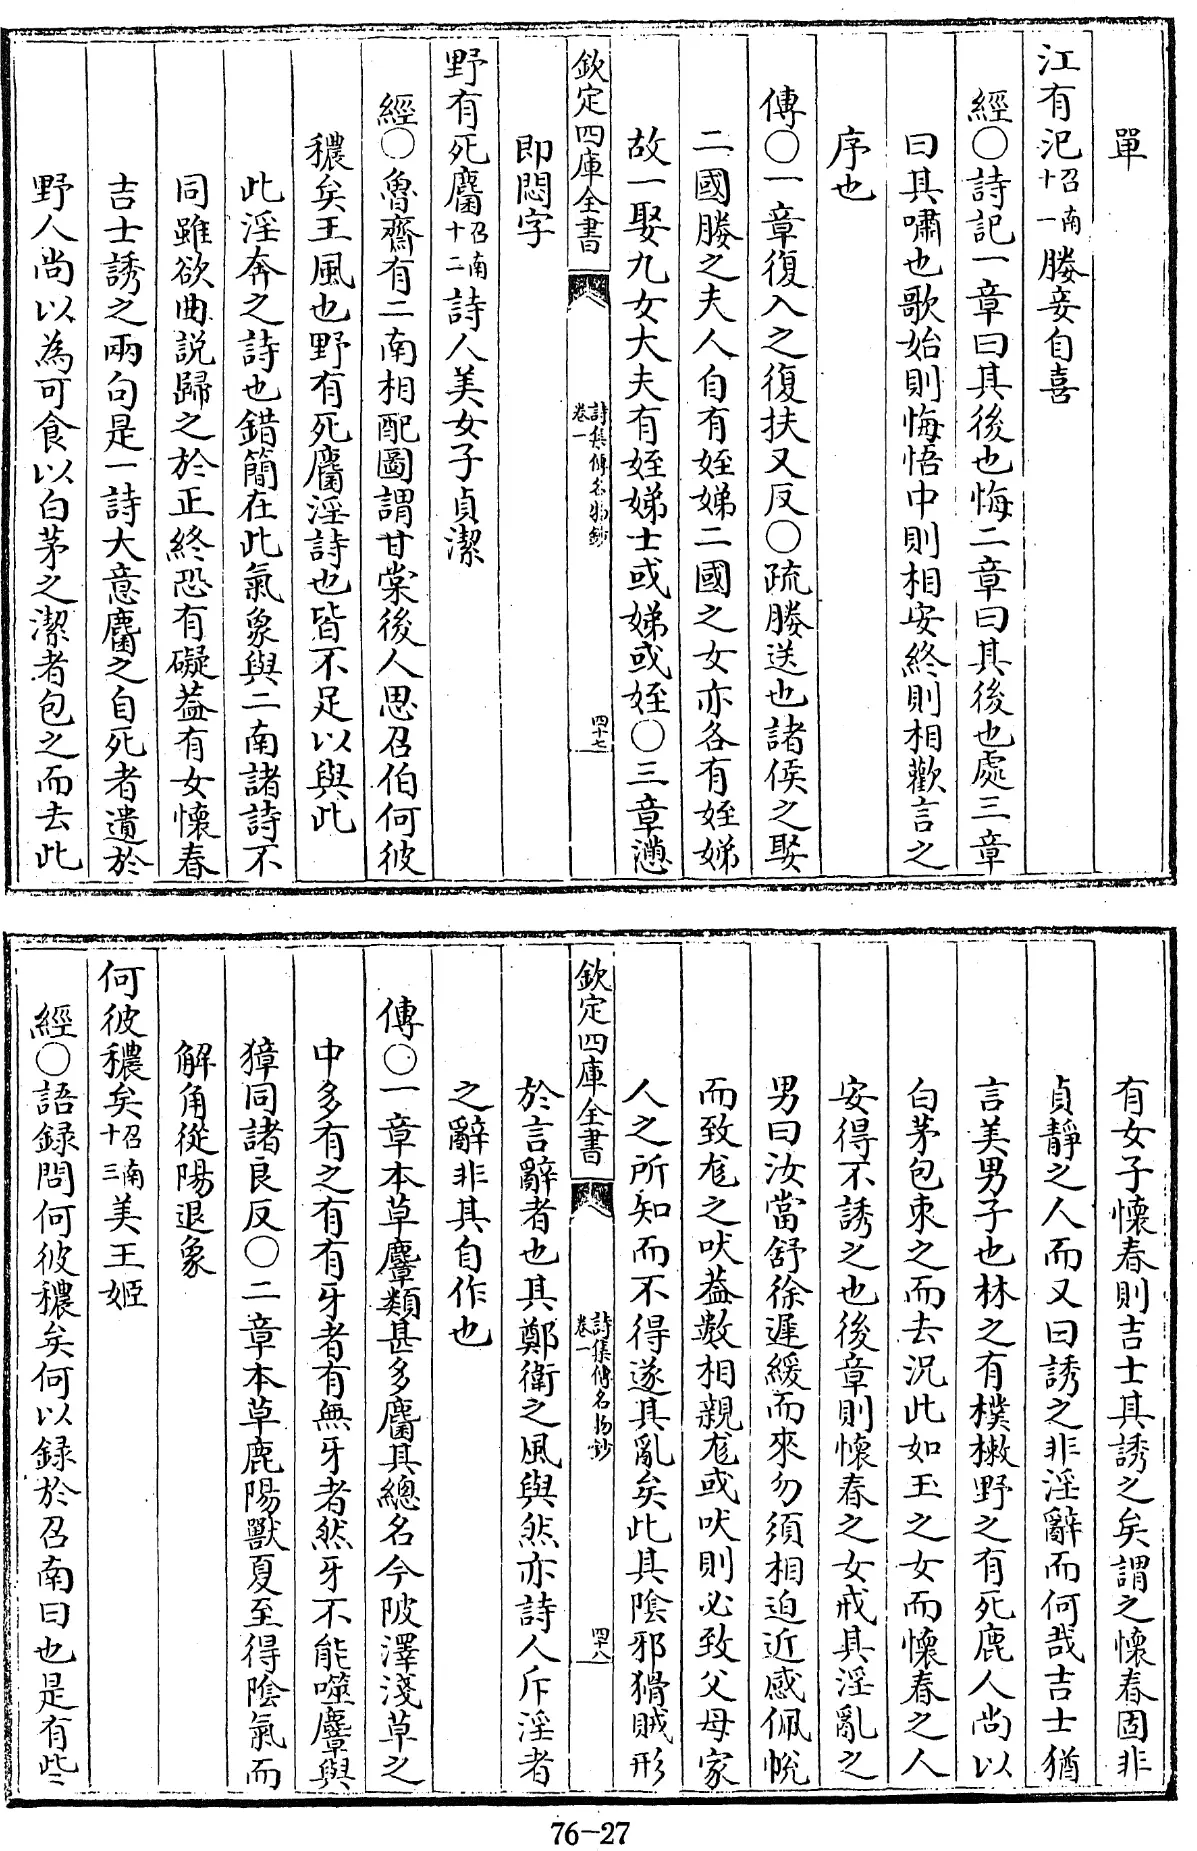 單
江有汜召南十一媵妾自喜
經○詩記一章曰其後也悔二章曰其後也處三章
曰其嘯也歌始則悔悟中則相安終則相歡言之
序也
傳○一章復入之復扶又反○疏媵送也諸侯之娶
二國媵之夫人自有姪娣二國之女亦各有姪娣
故一娶九女大夫有姪娣士或娣或姪○三章懣
欽定四庫全書
詩集傳名物鈔
卷一
四十七
即悶字
野有死麕召南十二詩人美女子貞潔
經○魯齋有二南相配圖謂甘棠後人思召伯何彼
穠矣王風也野有死麕淫詩也皆不足以與此
此淫奔之詩也錯簡在此氣象與二南諸詩不
同雖欲曲說歸之於正終恐有礙葢有女懷春
吉士誘之兩句是一詩大意麕之自死者遺於
野人尚以為可食以白茅之潔者包之而去此
有女子懷春則吉士其誘之矣謂之懷春固非
貞靜之人而又曰誘之非淫辭而何哉吉士猶
言美男子也林之有樸樕野之有死鹿人尚以
白茅包束之而去況此如玉之女而懷春之人
安得不誘之也後章則懷春之女戒其淫亂之
男曰汝當舒徐遲緩而來勿須相迫近感佩帨
而致尨之吠葢數相親尨或吠則必致父母家
人之所知而不得遂其亂矣此其陰邪猾賊形
欽定四庫全書
詩集傳名物鈔
卷一
四十八
於言辭者也其鄭衛之風與然亦詩人斥淫者
之辭非其自作也
傳○一章本草麞類甚多麕其總名今陂澤淺草之
中多有之有有牙者有無牙者然牙不能噬麞與
獐同諸良反○二章本草鹿陽獸夏至得陰氣而
解角從陽退象
何彼穠矣召南十三美王姬
經○語録問何彼穠矣何以録於召南曰也是有些
76-27